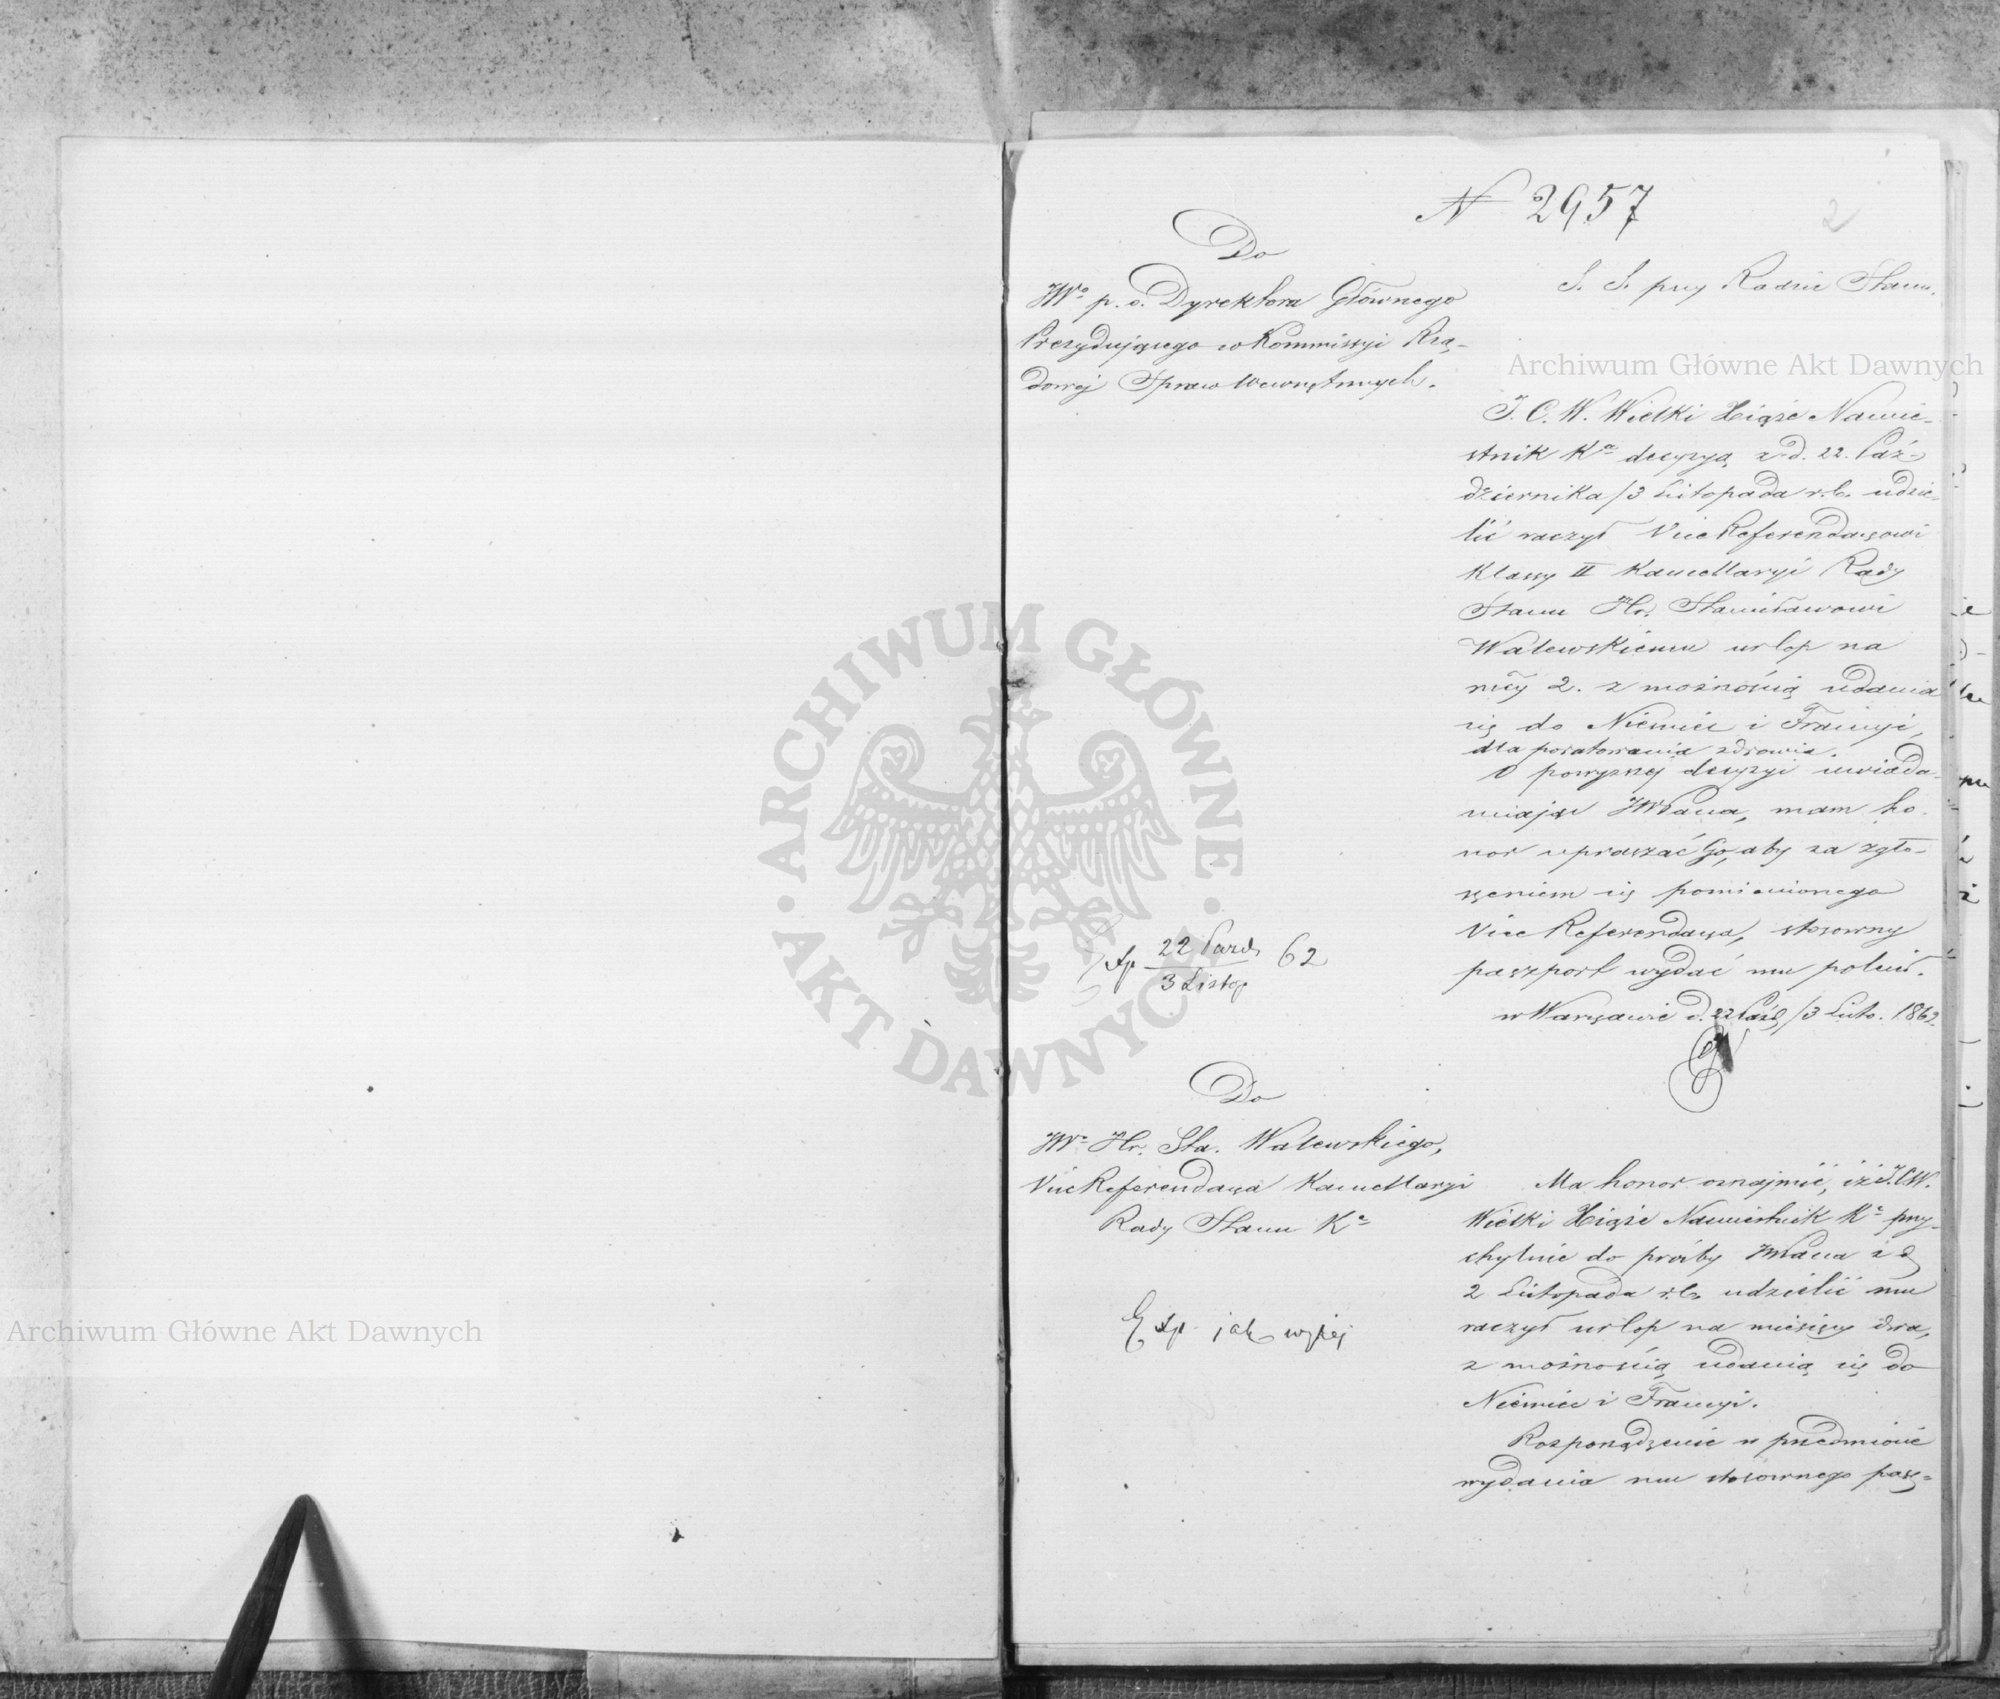 N 2957
2
Do
JWo p. o. Dyrektora Głównego
Prezydującego w Kommissyi Rzą-
dowej Spraw Wewnętrznych.
S. S. przy Radzie Stanu.
J. C. W. Wielki Xiąże Namie-
stnik Ka decyzyą z d. 22. Paź-
dziernika/3 Listopada r. b. udzie-
lić raczył Vice Referendarzowi
Klassy II Kancellaryi Rady
Stanu Hr. Stanisławowi
Walewskiemu urlop na
mcy 2. z możnością udania
się do Niemiec i Francyi,
dla poratowania zdrowia.
O powyższej decyzyi uwiada-
miając JWPana, mam ho-
nor upraszać Go, aby za zgło-
szeniem się pomienionego
Vice Referendarza, stosowny
paszport wydać mu polecił.
w Warszawie d. 22 Paźd/3 Listo. 1862.
Exp 22 Pazd/3 Listop 62
Do
JWo Hr. Sta. Walewskiego,
Vice Referendarza Kancellaryi
Rady Stanu Ka
Exp jak wyżej
Ma honor oznajmić, iż J.C.W.
Wielki Xiąże Namiestnik Ka przy-
chylnie do prośby JWPana z d
2 Listopada r. b. udzielić mu
raczył urlop na miesięcy dwa,
z możnością udania się do
Niemiec i Francyi.
Rozporządzenie w przedmiocie
wydania mu stosownego pasz-
Archiwum Główne Akt Dawnych
Archiwum Główne Akt Dawnych
ARCHIWUM GŁÓWNE
AKT DAWNYCH